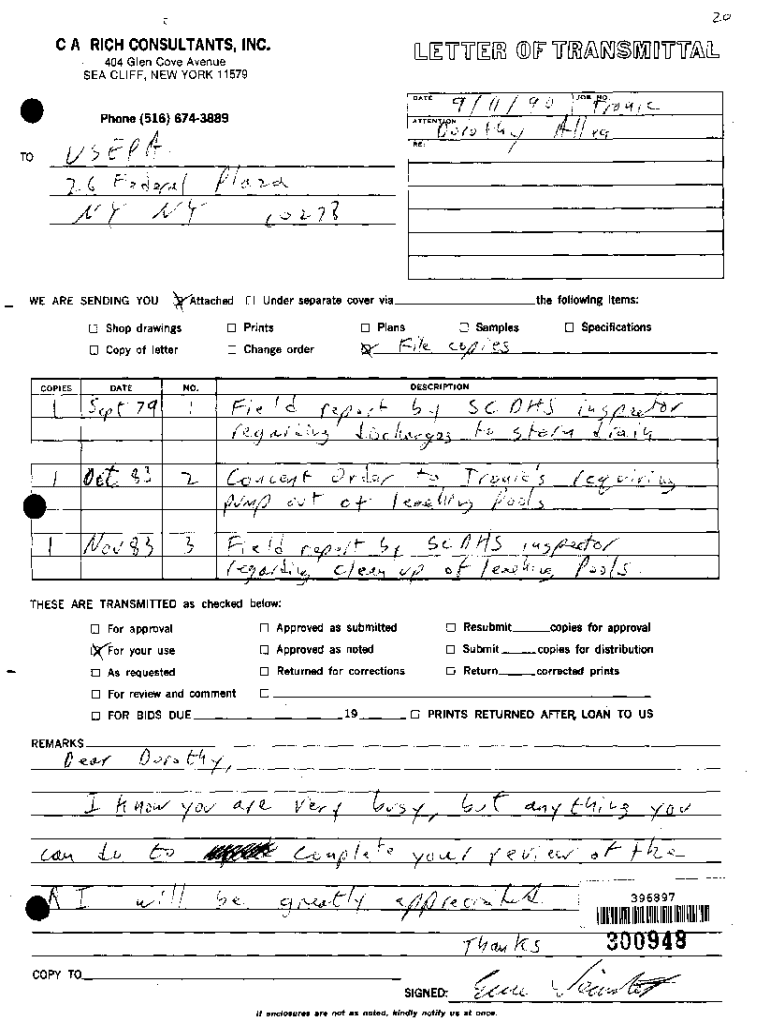 20
C A RICH CONSULTANTS, INC.
404 Glen Cove Avenue
SEA CLIFF, NEW YORK 11579
LETTER OF TRANSMITTAL
Phone (516) 674-3889
DATE 9/11/90 JOB NO. Tronic
ATTENTION Dorothy
RE:
TO USEPA
26 Federal Plaza
NY NY 10278
WE ARE SENDING YOU Attached Under separate cover via the following items:
Shop drawings Prints Plans Samples Specifications
Copy of letter Change order File copies
COPIES DATE NO. DESCRIPTION
1 Sept 79 1 Field report by SCDHS inspector
regarding discharges to storm drain
1 Oct 83 2 Concent Order to Tronic's requiring
pump out of leaching pools
1 Nov 83 3 Field report by SCDHS inspector
regarding clean up of leaching Pools.
THESE ARE TRANSMITTED as checked below:
For approval Approved as submitted Resubmit copies for approval
For your use Approved as noted Submit copies for distribution
As requested Returned for corrections Return corrected prints
For review and comment
FOR BIDS DUE 19 PRINTS RETURNED AFTER LOAN TO US
REMARKS
Dear Dorothy,
I know you are very busy, but anything you
can do to complete your review of the
RI will be greatly appreciated
396897
Thanks
300948
COPY TO
SIGNED:
If enclosures are not as noted, kindly notify us at once.